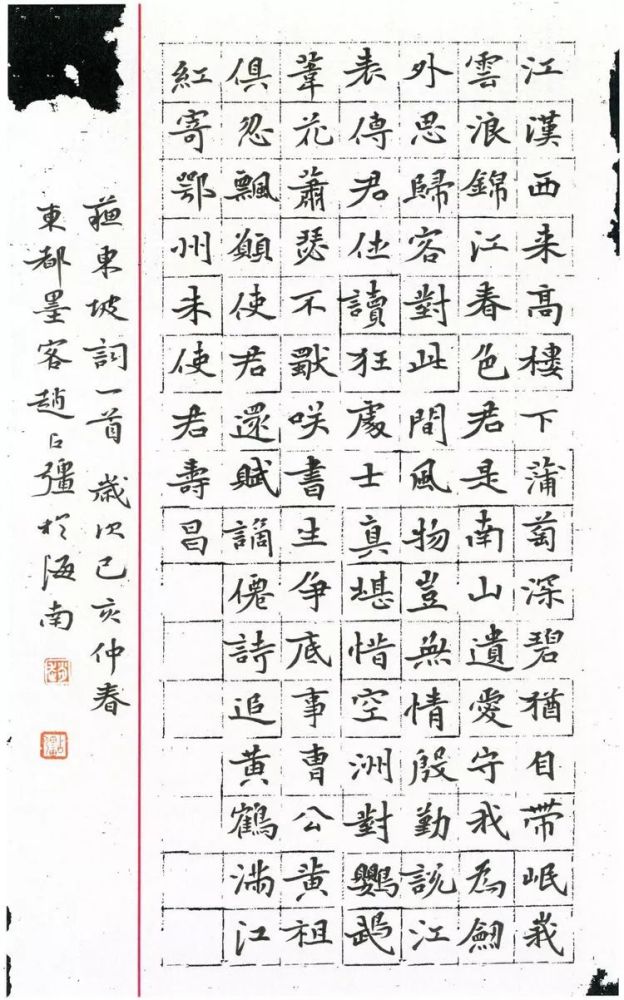 江漢西来髙樓下蒲萄深碧猶自帶岷峩
雲浪錦江春色君是南山遺愛守我為劒
外思歸客對此間風物豈無情殷勤說江
表傳君休讀狂處士真堪惜空洲對鸚鵡
葦花蕭瑟不獸咲書生爭底事曹公黃祖
俱忽飄願使君還賦謫僊詩追黃鶴滿江
紅寄鄂州朱使君壽昌
蘓東坡詞一首 歲次己亥仲春
東都墨客趙占彊於海南